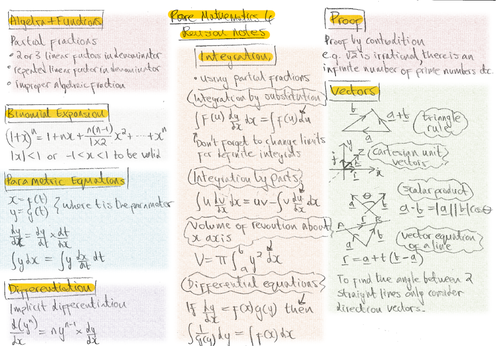 Pure Mathematics 4
Revision notes
Algebra + Functions
Partial fractions
• 2 or 3 linear factors in denominator
• repeated linear factor in denominator
• improper algebraic fraction
Binomial Expansion
(1+x)^n = 1+nx+ n(n-1)/1x2 x^2 + --- + x^n
|x|<1 or -1<x<1 to be valid
Parametric Equations
x=f(t)
y=g(t)
} where t is the parameter
dy/dx = dy/dt x dt/dx
∫y dx = ∫y dx/dt dt
Differentiation
Implicit differentiation
d(y^n)/dx = ny^(n-1) x dy/dx
Integration
• using partial fractions
Integration by substitution
∫f(u) dy/dx dx = ∫f(u)du
Don't forget to change limits
for definite integrals
Integration by parts
∫u dv/dx dx = uv - ∫v du/dx dx
Volume of revolution about
x axis
V = π∫_a^b y^2 dx
Differential equations
If dy/dx = f(x)g(y) then
∫1/g(y) dy = ∫f(x) dx
Proof
Proof by contradiction
e.g. √2 is irrational, there is an
infinite number of prime numbers etc.
Vectors
a
b
a+b
triangle
rule
Cartesian unit
vectors
scalar product
a·b = |a||b|cosθ
vector equation
of a line
r = a+t(b-a)
To find the angle between 2
straight lines only consider
direction vectors.